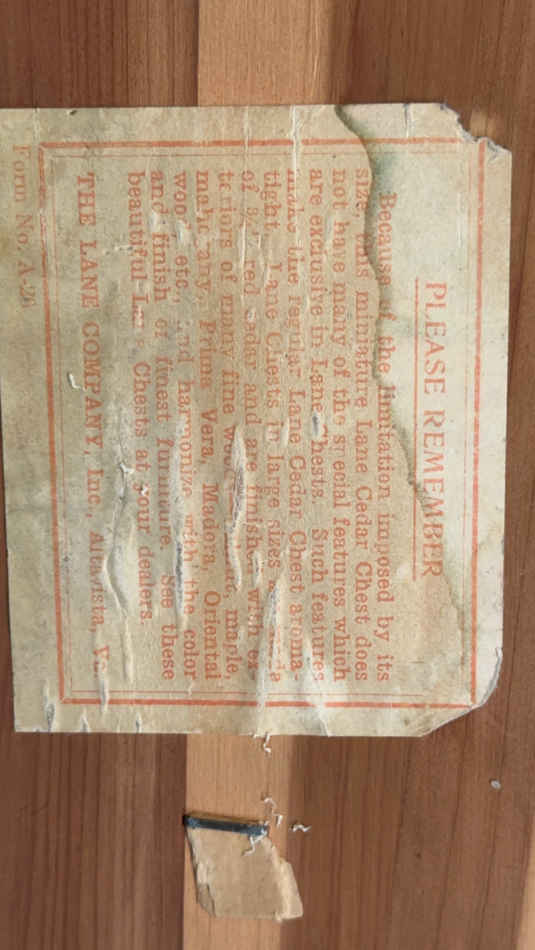 PLEASE REMEMBER
Because of the limitation imposed by its
size, this miniature Lane Cedar Chest does
not have many of the special features which
are exclusive in Lane Chests. Such features
make the regular Lane Cedar Chest aroma-
tight. Lane Chests in large sizes
of red cedar and are finished with ex-
teriors of many fine maple,
mahogany, Prima Vera, Madora, Oriental
wood, etc., and harmonize with the color
and finish of finest furniture. See these
beautiful Lane Chests at your dealers.
THE LANE COMPANY, Inc., Altavista, Va.
Form No. A-